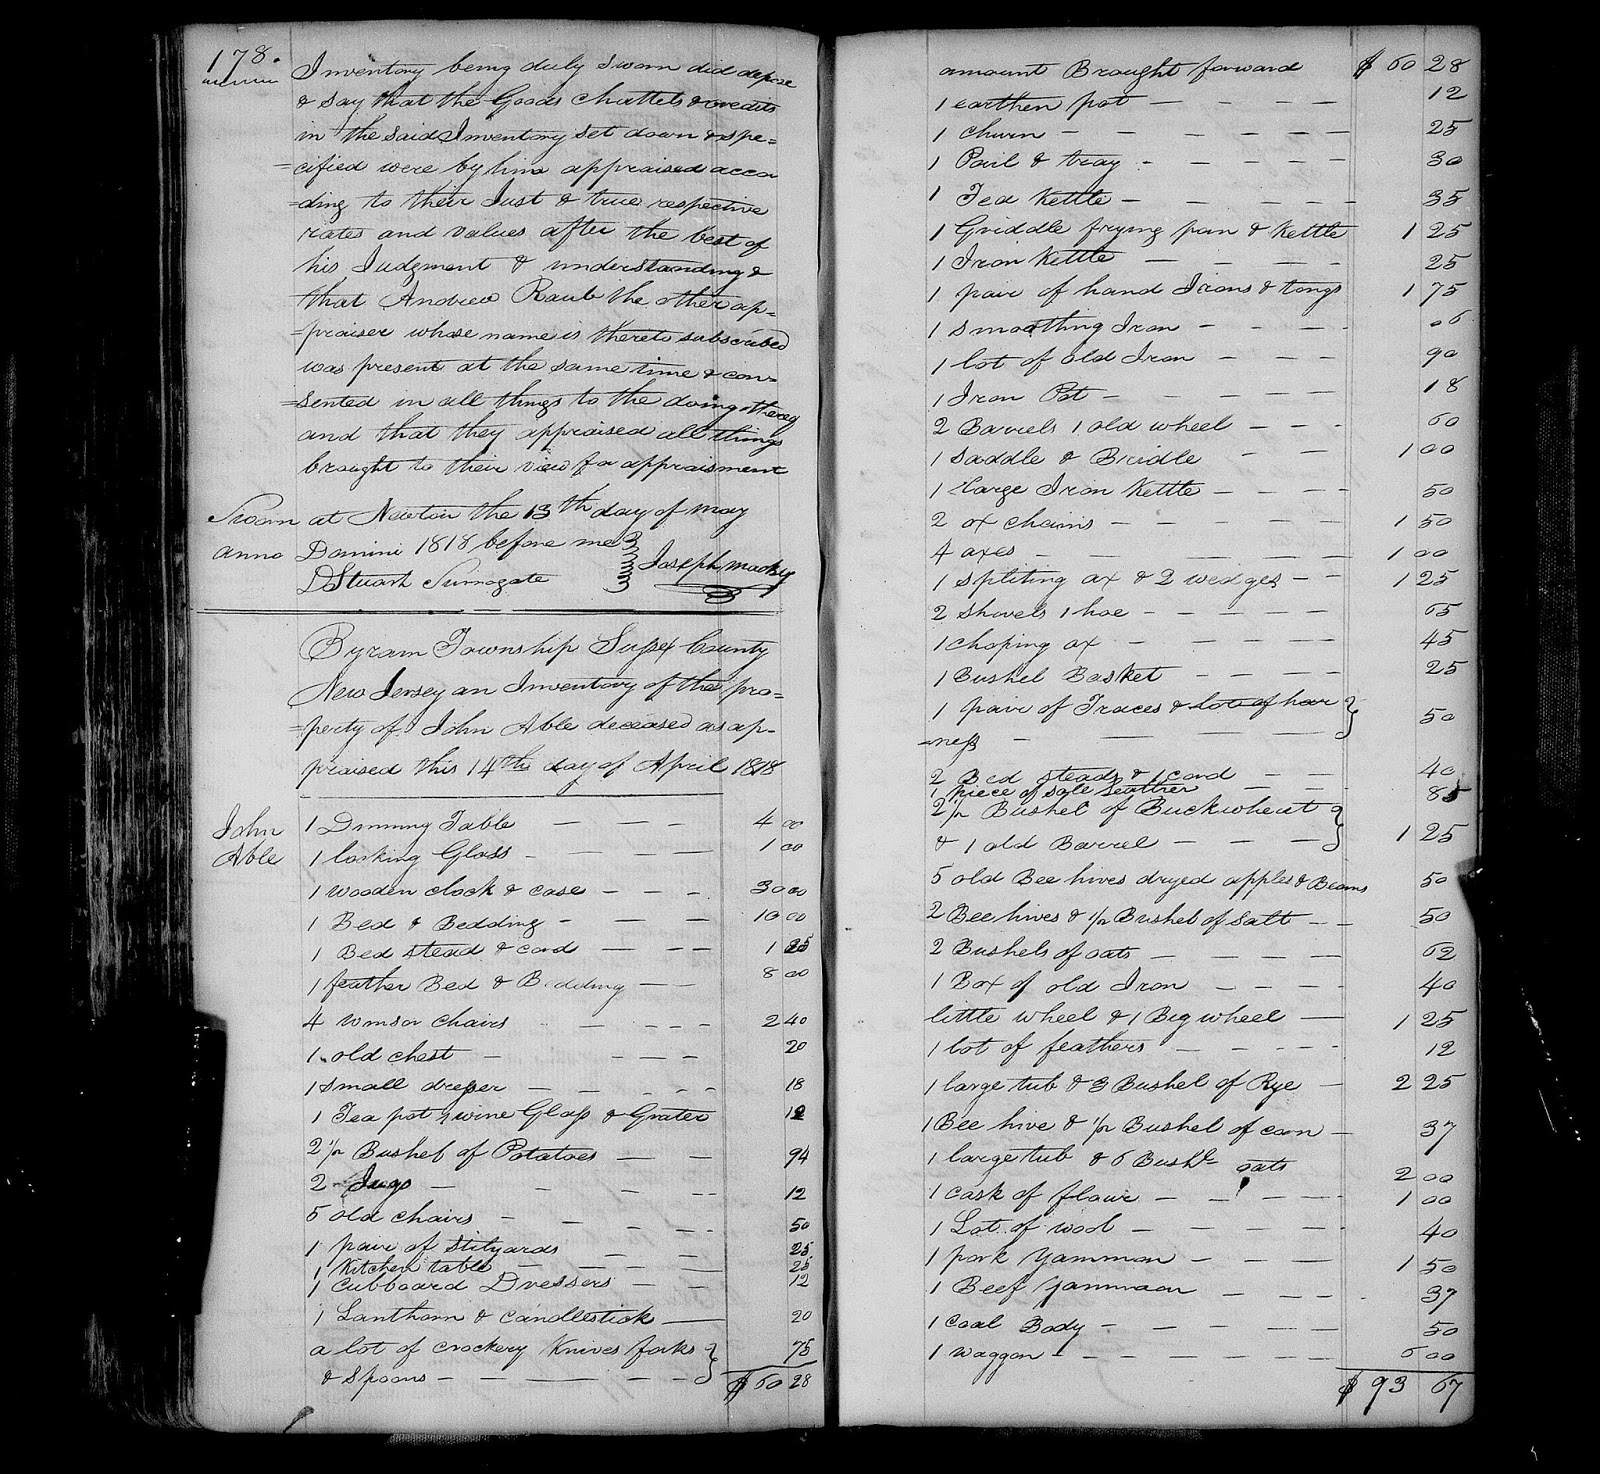 178.
Inventory being duly sworn did depose
& say that the Goods Chattels & credits
in the said Inventory set down & spe=
=cified were by him appraised accor
=ding to their Just & true respective
rates and values after the best of
his Judgment & understanding &
that Andrew Raub the other ap=
=praiser whose name is thereto subscribed
was present at the same time & con=
=sented in all things to the doing thereof
and that they appraised all things
brought to their view for appraisment
Sworn at Newton the 13th day of may
anno Domini 1818 before me } Joseph Macky
D Stuart Surrogate
Byram Township Sussex County
New Jersey an Inventory of the pro=
=perty of John Able deceased as ap=
praised this 14th day of April 1818
John
Able
1 Dinning Table — — — 4 00
1 looking Glass - — — — 1 00
1 wooden clock & case — — — 30 00
1 Bed & Bedding - — — — 10 00
1 Bed stead & cord — — — 1 25
1 feather Bed & Bedding — — 8 00
4 winsor chairs — — — 2 40
1 old chest — — — — 20
1 small dresser — — — — 18
1 Tea pot 1 wine Glass & Grater 12
2 1/2 Bushel of Potatoes — — 94
2 Jugs — — — — 12
5 old chairs - — — — 50
1 pair of Stilyards — — 25
1 Kitchen table — — — — 25
1 Cubboard Dressers — — 12
1 Lanthorn & candlestick — 20
a lot of crockery Knives forks } 75
& Spoons — — — — —
$ 60 28
amount Brought forward $ 60 28
1 earthen pot — — — — 12
1 churn — — — — — 25
1 Pail & tray - — — — — 30
1 Tea Kettle — — — — — 35
1 Griddle frying pan & Kettle 1 25
1 Iron Kettle — — — — 25
1 pair of hand Irons & tongs 1 75
1 smoothing Iron - — — - 06
1 lot of old Iron — — — - 90
1 Iron Pot — — — — — 18
2 Barrels 1 old wheel — — - 60
1 Saddle & Bridle — — — 1 00
1 Large Iron Kettle — — — - 50
2 ox chains — — — — — 1 50
4 axes — — — — — — 1 00
1 spliting ax & 2 wedges — — 1 25
2 shovels 1 hoe — — — — — 65
1 choping ax — — — — — 45
1 Bushel Basket — — — — 25
1 pair of Traces & lot of har } 50
=ness — — — —
2 Bed steads & 1 cord — — 40
1 piece of sole leather — — — 85
2 1/2 Bushel of Buckwheat }
& 1 old Barrel — — — — 1 25
5 old Bee hives dryed apples & Beans 50
2 Bee hives & 1/2 Bushel of Salt — — 50
2 Bushels of oats — — — — 62
1 Box of old Iron — — — — 40
little wheel & 1 Big wheel — 1 25
1 lot of feathers — — — — 12
1 large tub & 3 Bushel of Rye — 2 25
1 Bee hive & 1/2 Bushel of corn — 37
1 large tub & 6 Bushls oats 2 00
1 cask of flour — — — — 1 00
1 Lot of wool — — — — — 40
1 pork yammon — — — — 1 50
1 Beef yammon — — — - 37
1 coal Body — — — — — 50
1 waggon — — — — — — 6 00
$ 93 67